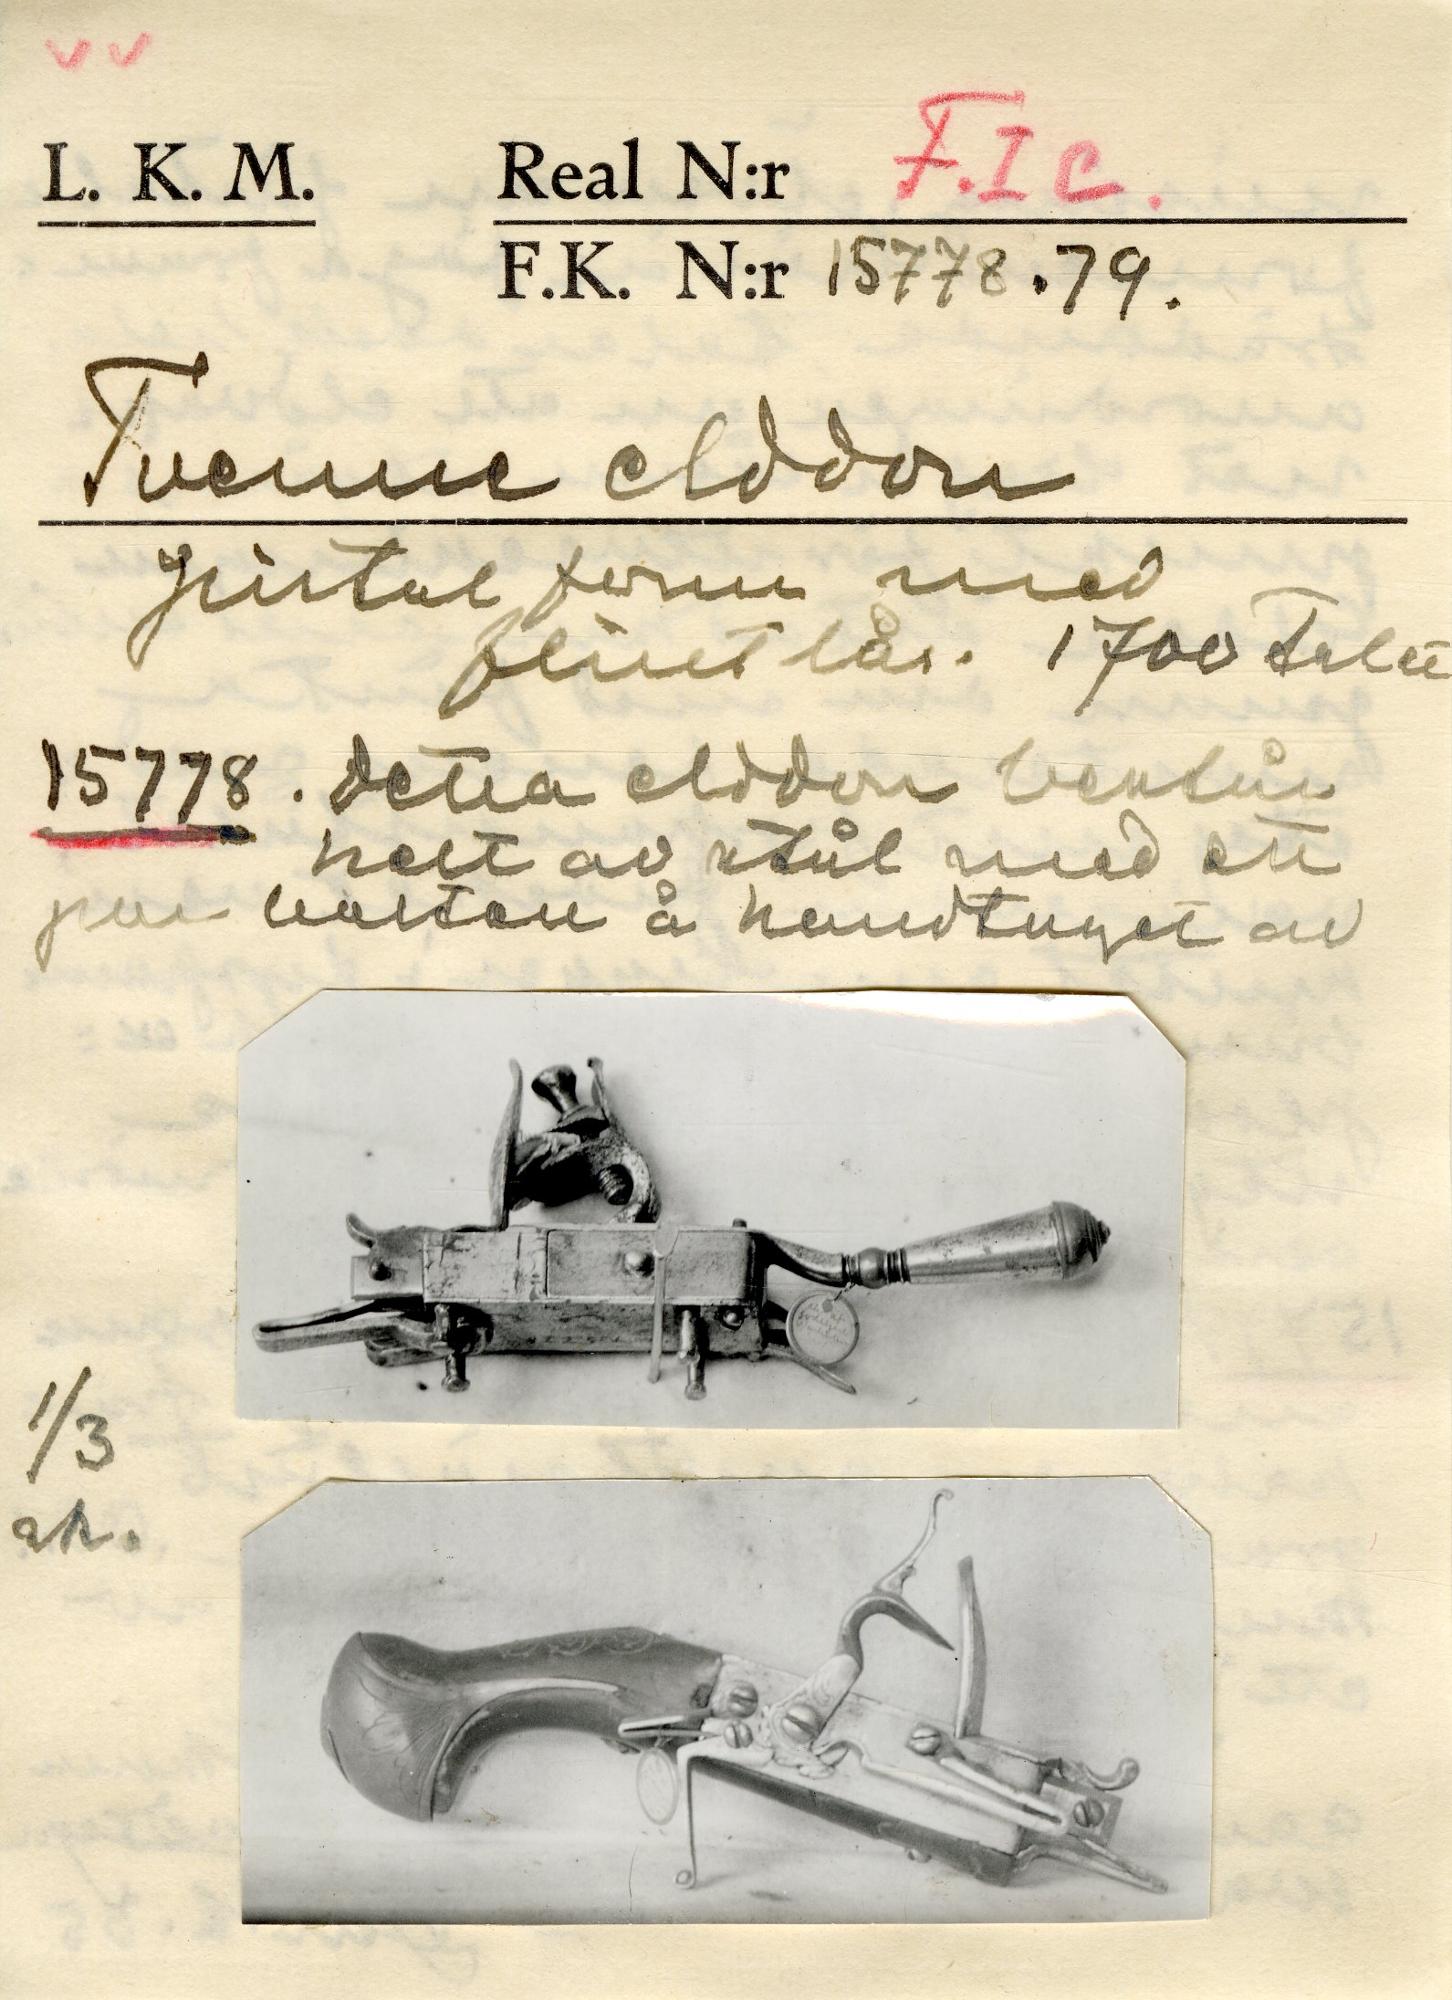 v v
L. K. M. Real N:r F.I c.
F.K. N:r 15778.79.
Tvenne elddon
pistol form med
flintlås. 1700 Talet
15778. Detta elddon består
helt av stål med ett
par holkar å handtaget av
1/3